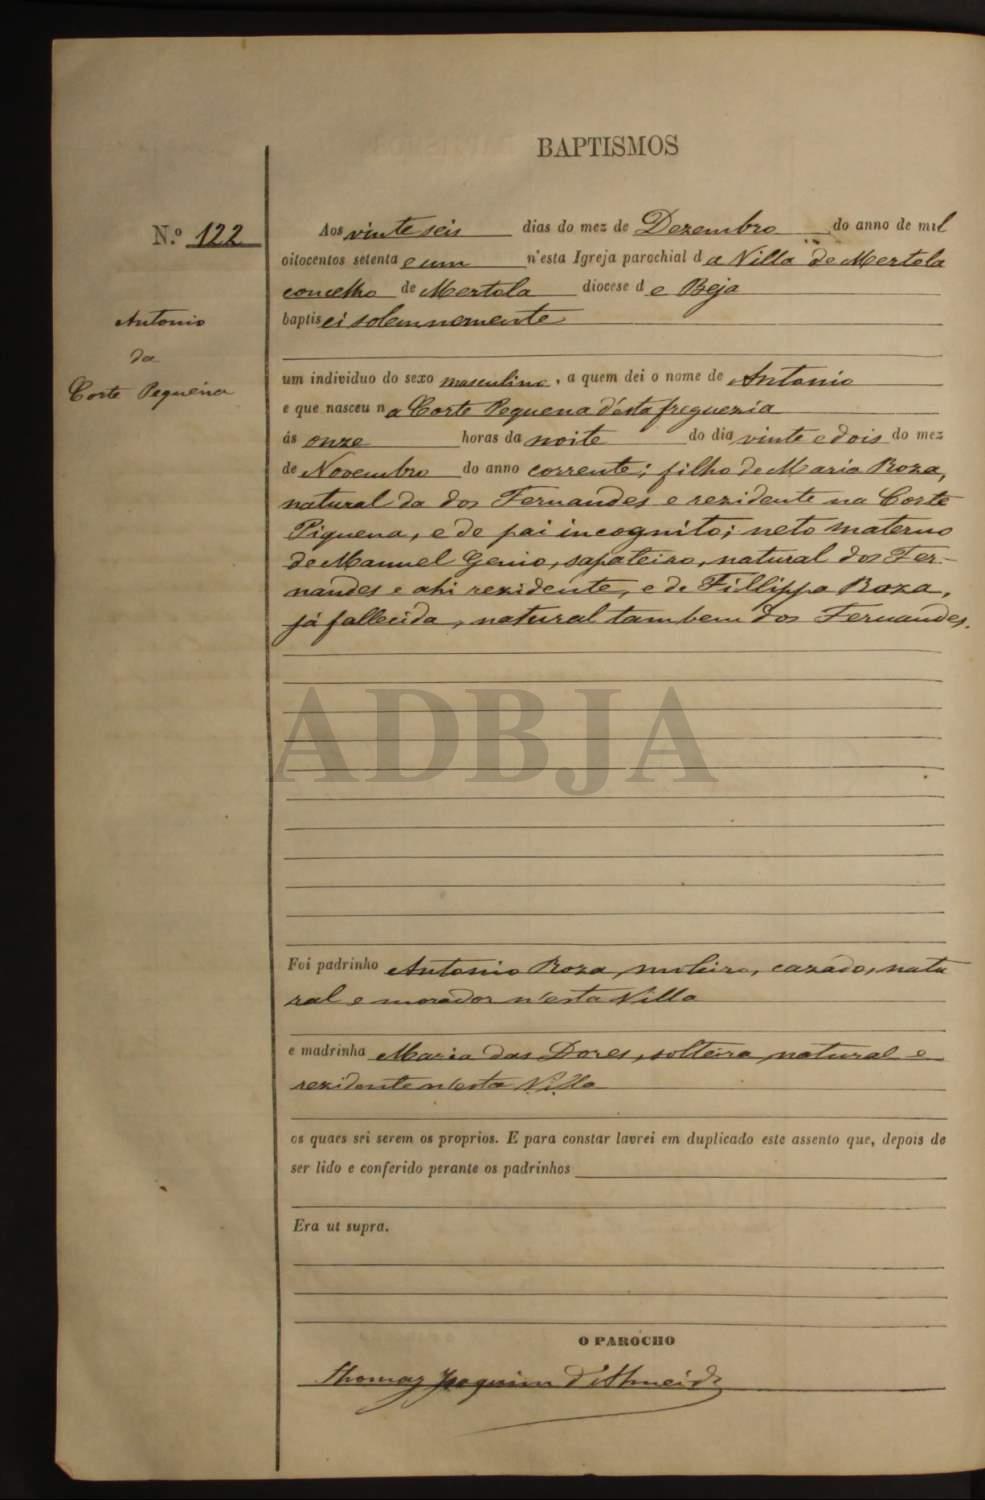 BAPTISMOS
N.º 122
Aos vinte seis dias do mez de Dezembro do anno de mil
oitocentos setenta e um n'esta Igreja parochial d a Villa de Mertola
concelho de Mertola diocese d e Beja
baptisei solemnemente
Antonio
da
Corte Pequena
um individuo do sexo masculino, a quem dei o nome de Antonio
e que nasceu na Corte Pequena d'esta freguezia
ás onze horas da noite do dia vinte e dois do mez
de Novembro do anno corrente; filho de Maria Roza,
natural da dos Fernandes e rezidente na Corte
Piquena, e de pai incognito; neto materno
de Manuel Genio, sapateiro, natural dos Fer-
nandes e ahi rezidente, e de Fillippa Roza,
já fallecida, natural tambem dos Fernandes.
ADBJA
Foi padrinho Antonio Roza, moleiro, cazado, natu
ral e morador n'esta Villa
e madrinha Maria das Dores, solteira natural e
rezidente n'esta Villa
os quaes sei serem os proprios. E para constar lavrei em duplicado este assento que, depois de
ser lido e conferido perante os padrinhos
Era ut supra.
O PAROCHO
Thomaz Joaquim d'Almeida